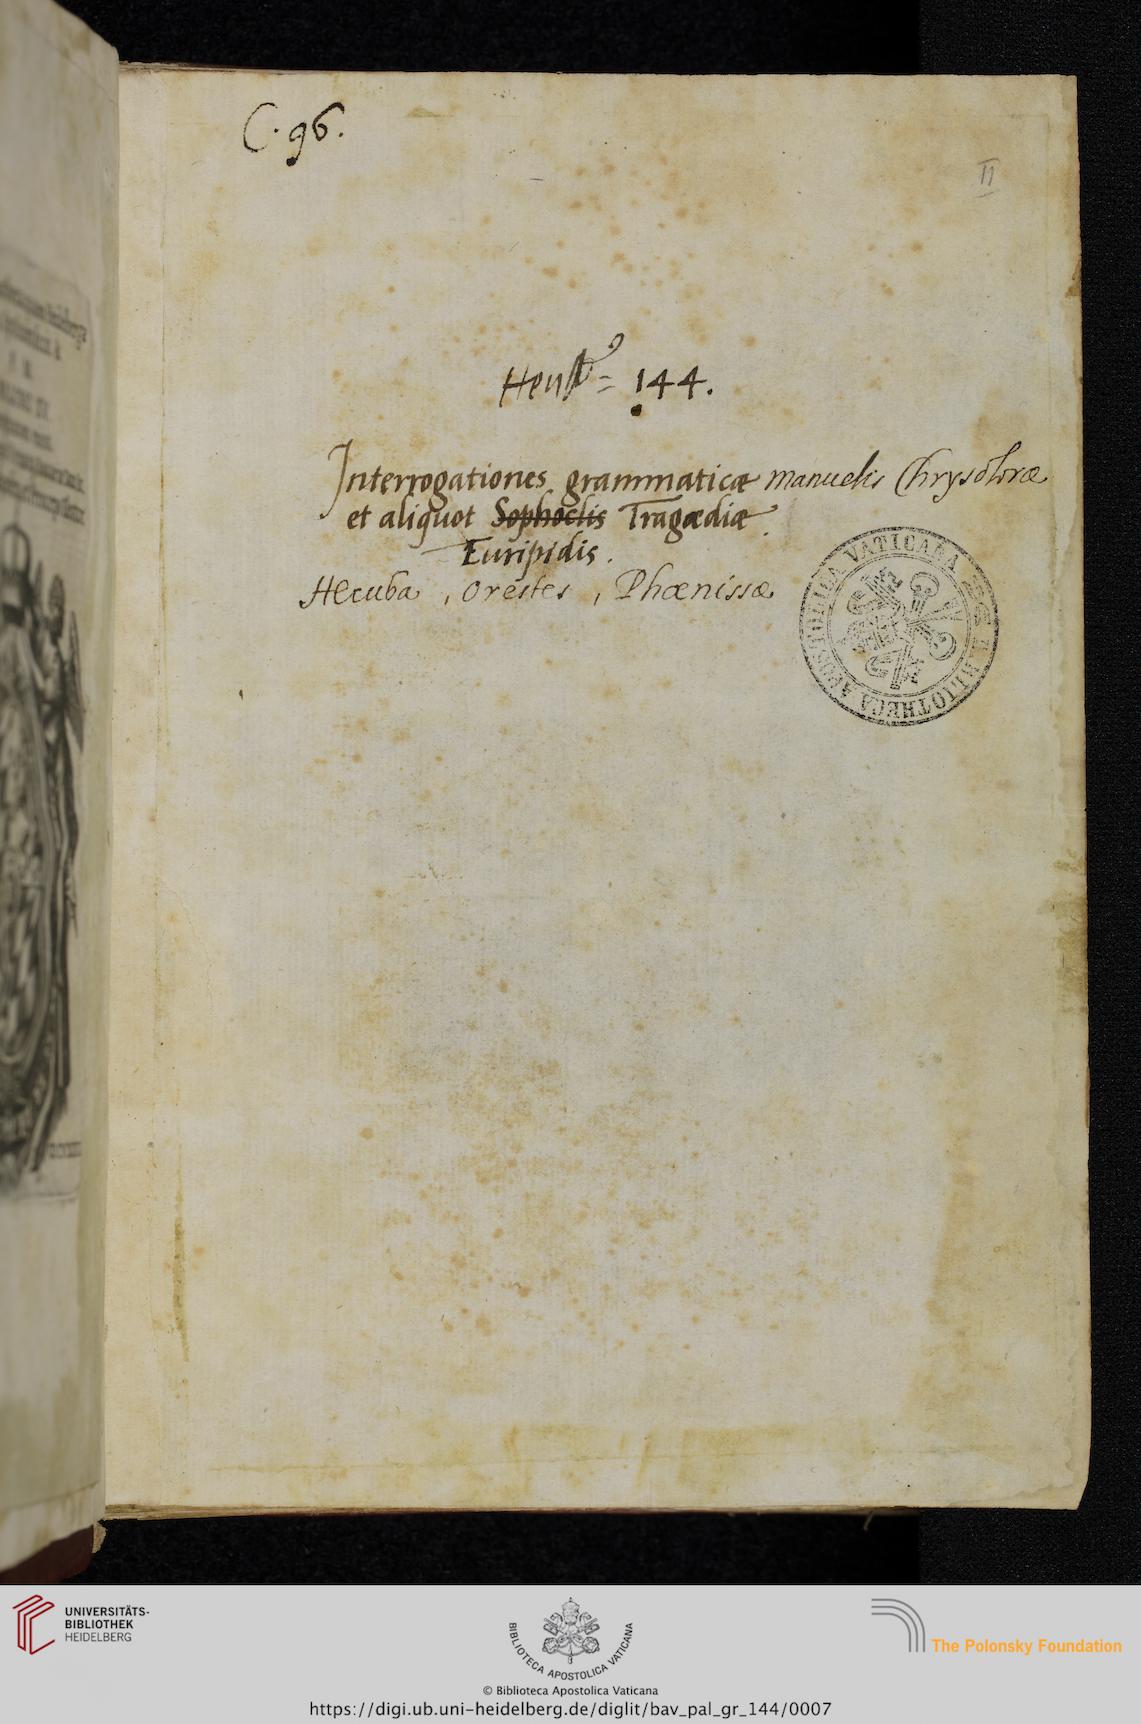 C. 96.
II
144.
Interrogationes grammaticæ Manuelis Chrysoloræ
et aliquot Sophoclis Tragædiæ
Euripidis.
Hecuba, Orestes, Phœnissæ
BIBLIOTHECA APOSTOLICA VATICANA
UNIVERSITÄTS-
BIBLIOTHEK
HEIDELBERG
BIBLIOTECA APOSTOLICA VATICANA
The Polonsky Foundation
© Biblioteca Apostolica Vaticana
https://digi.ub.uni-heidelberg.de/diglit/bav_pal_gr_144/0007